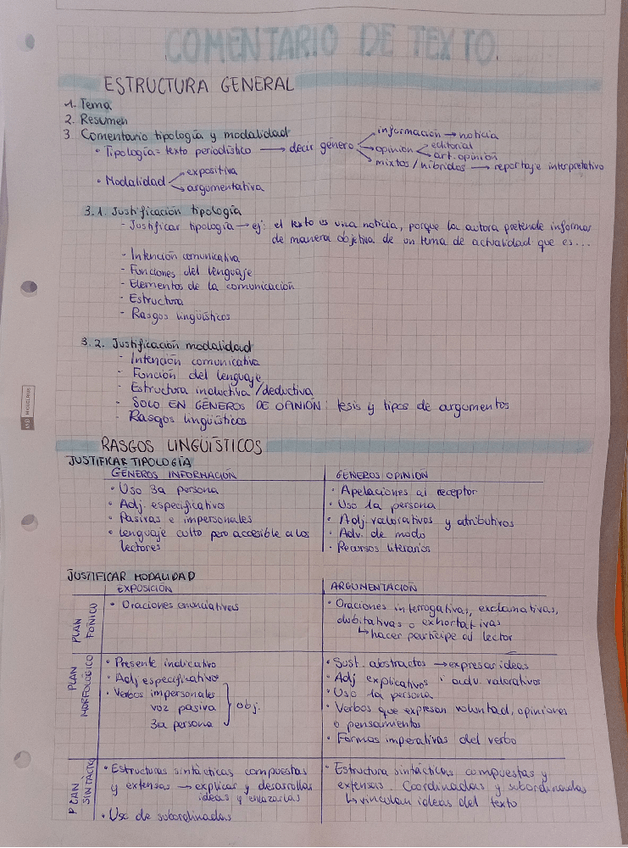 COMENTARIO DE TEXTO
ESTRUCTURA GENERAL
1. Tema
2. Resumen
3 Comentario tipología y modalidad
• Tipología = texto periodístico → decir género
información → noticia
opinión
editorial
art. opinión
mixtos / híbridos → reportaje interpretativo
• Modalidad
expositiva
argumentativa
3.1. Justificación tipología
- Justificar tipología → ej: el texto es una noticia, porque la autora pretende informar
de manera objetiva de un tema de actualidad que es...
- Intención comunicativa
- Funciones del lenguaje
- Elementos de la comunicación
- Estructura
- Rasgos lingüísticos
3.2. Justificación modalidad
- Intención comunicativa
- Función del lenguaje
- Estructura inductiva / deductiva
- SOLO EN GÉNEROS DE OPINIÓN: tesis y tipos de argumentos
- Rasgos lingüísticos
RASGOS LINGÜÍSTICOS
JUSTIFICAR TIPOLOGÍA
GÉNEROS INFORMACIÓN
• Uso 3a persona
• Adj. especificativo
• Pasivas e impersonales
• Lenguaje culto pero accesible a los
lectores
GÉNEROS OPINIÓN
• Apelaciones al receptor
• Uso 1a persona
• Adj. valorativos y atributivos
• Adv. de modo
• Recursos literarios
JUSTIFICAR MODALIDAD
EXPOSICIÓN
ARGUMENTACIÓN
PLAN
FÓNICO
• Oraciones enunciativas
• Oraciones interrogativas, exclamativas,
dubitativas o exhortativas
↳ hacer partícipe al lector
PLAN
MORFOLÓGICO
• Presente indicativo
• Adj especificativo
• Verbos impersonales
voz pasiva
3a persona
obj.
• Sust. abstractos → expresar ideas
• Adj explicativos · adv. valorativos
• Uso 1a persona
• Verbos que expresan voluntad, opiniones
o pensamientos
• Formas imperativas del verbo
PLAN
SINTÁCTICO
• Estructuras sintácticas compuestas
y extensas → explicar y desarrollar
ideas y enlazarlas
• Uso de subordinadas
• Estructura sintácticas compuestas y
extensas. Coordinadas y subordinadas
↳ vinculan ideas del texto